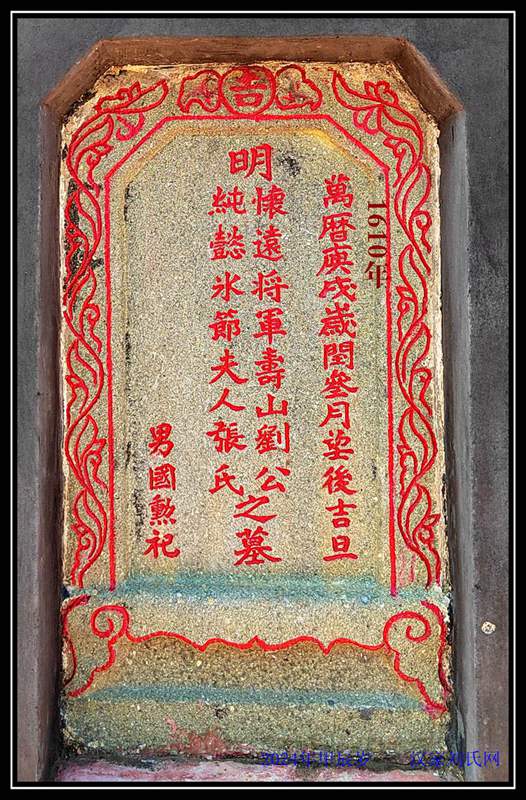 山吉向
1610年
萬曆庚戌歲閏叄月望後吉旦
明
懷遠将軍壽山劉公
純懿氷節夫人張氏
之墓
男國勲祀
2024年甲辰岁 汉家刘氏网